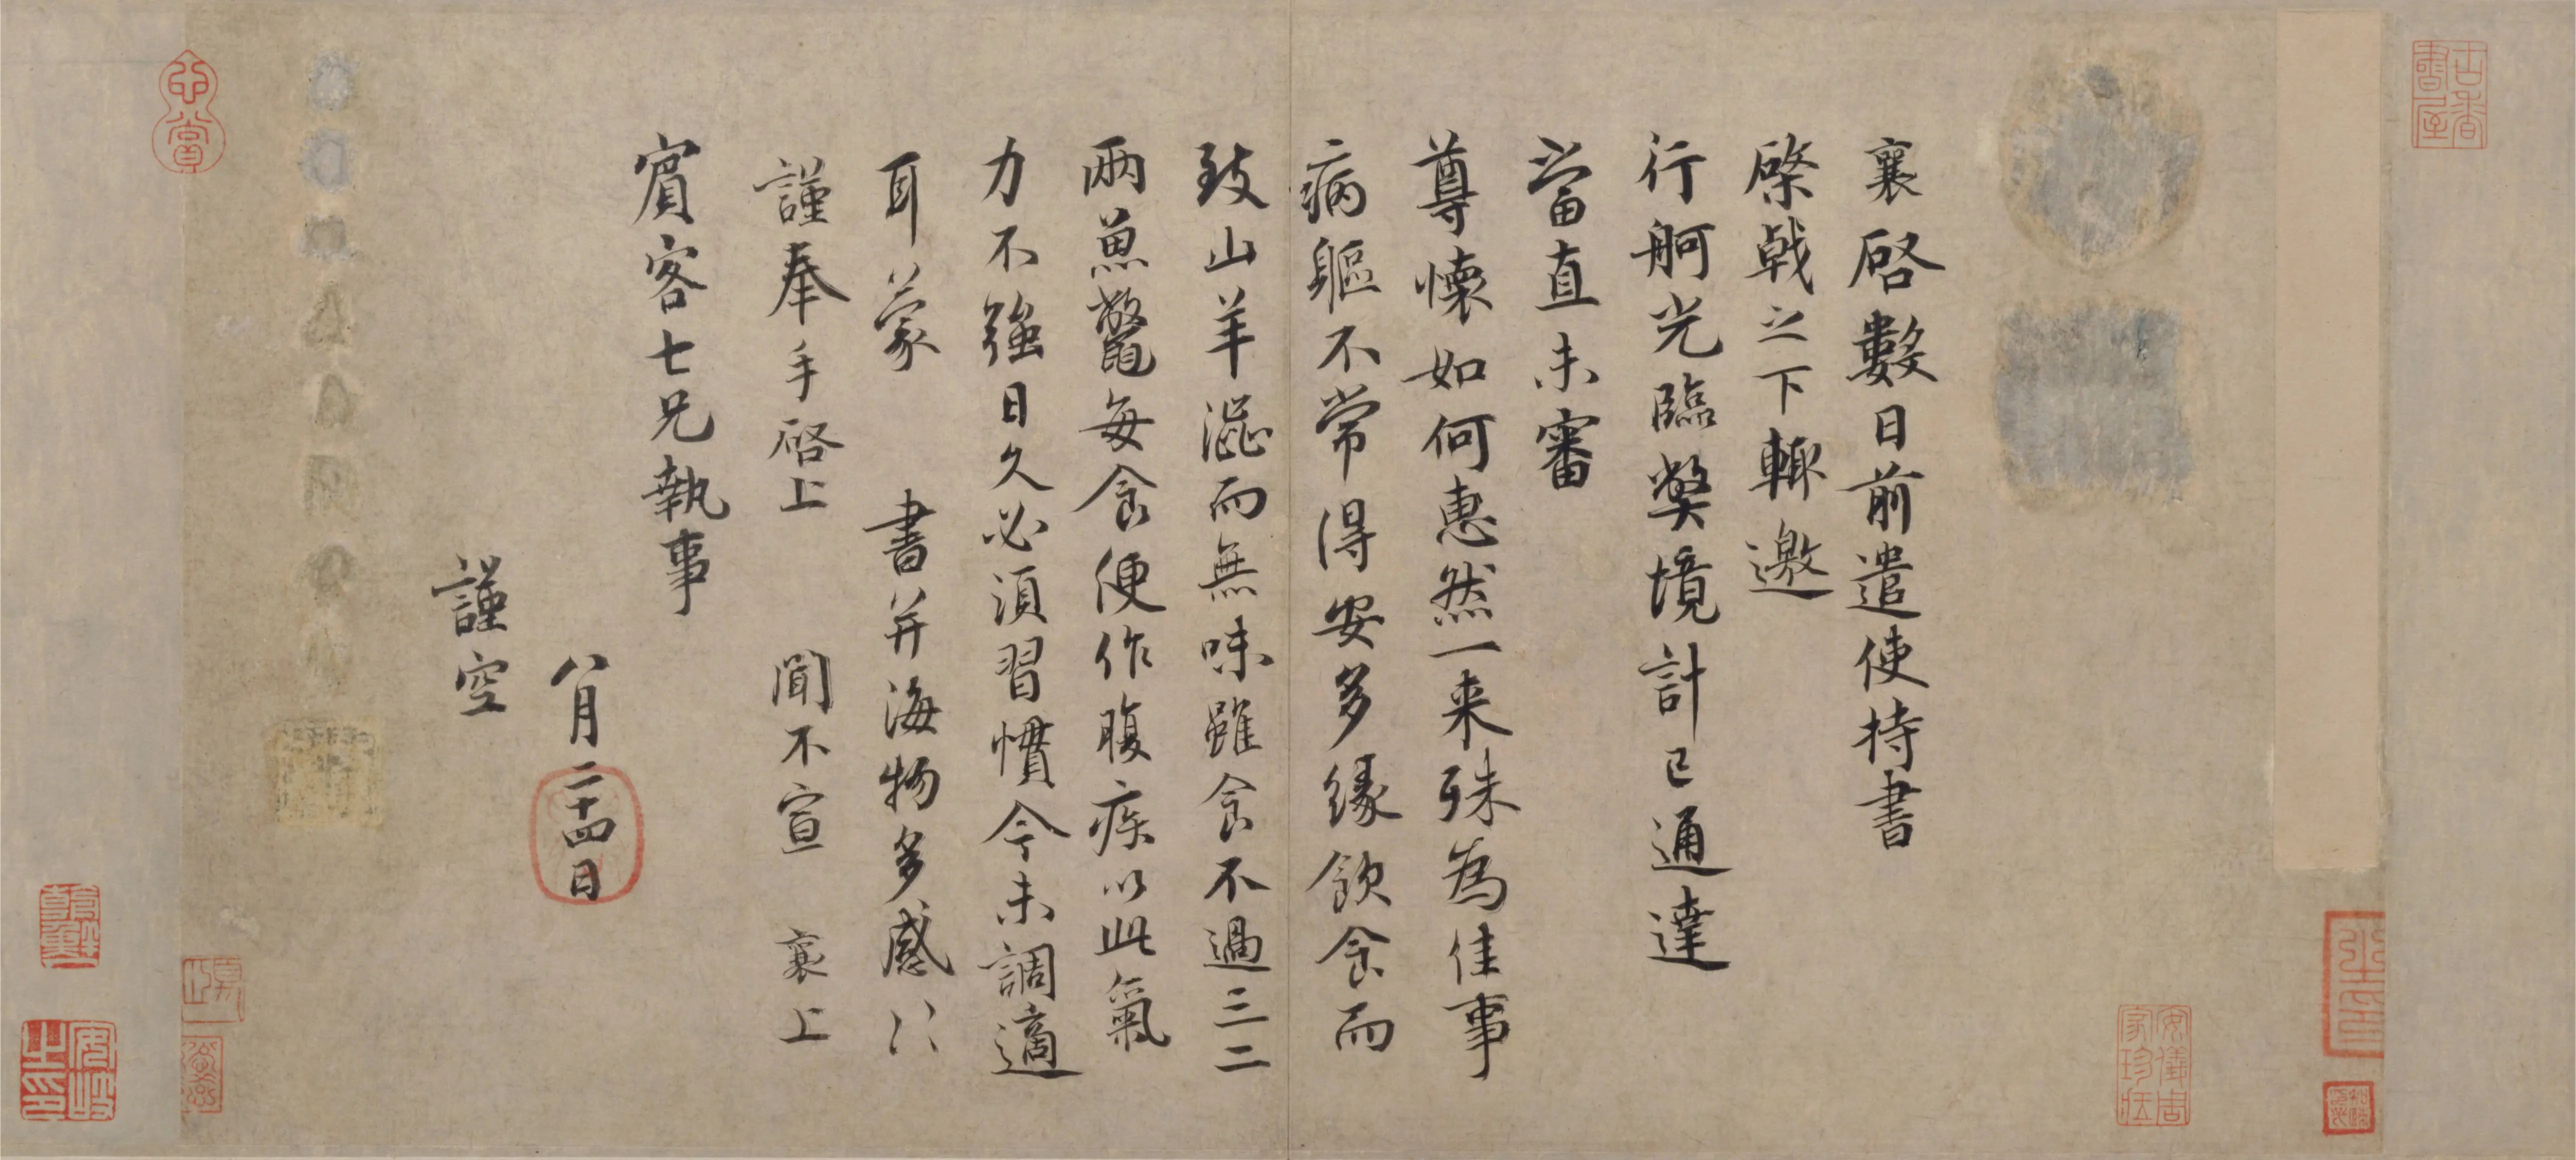 襄啓數日前遣使持書
棨戟之下輒邀
行舸光臨弊境計已通達
當直未審
尊懷如何惠然一来殊為佳事
病軀不常得安多緣飲食而
致山羊澁而無味雖食不過三二
兩魚鼈每食便作腹疾以此氣
力不強日久必須習慣今未調適
耳蒙 書并海物多感〻
謹奉手啓上 聞不宣 襄上
賓客七兄執事
八月二十四日
謹空
古香書屋
心賞
安儀周家珍藏
安岐之印